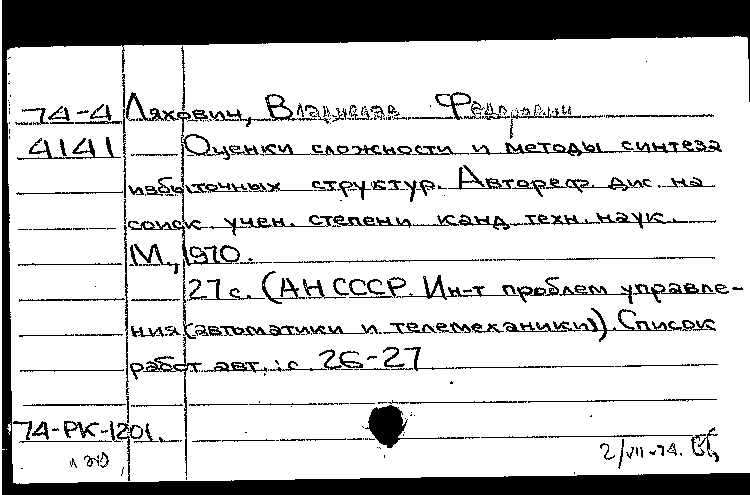 74-4 Ляхович, Владислав Федорович
4141 Оценки сложности и методы синтеза
избыточных структур. Автореф. дис. на
соиск. учен. степени канд. техн. наук.
М., 1970.
27 с. (АН СССР. Ин-т проблем управле-
ния (автоматики и телемеханики)). Список
работ авт.: с. 26-27
74-РК-1201.
2/VII-74.